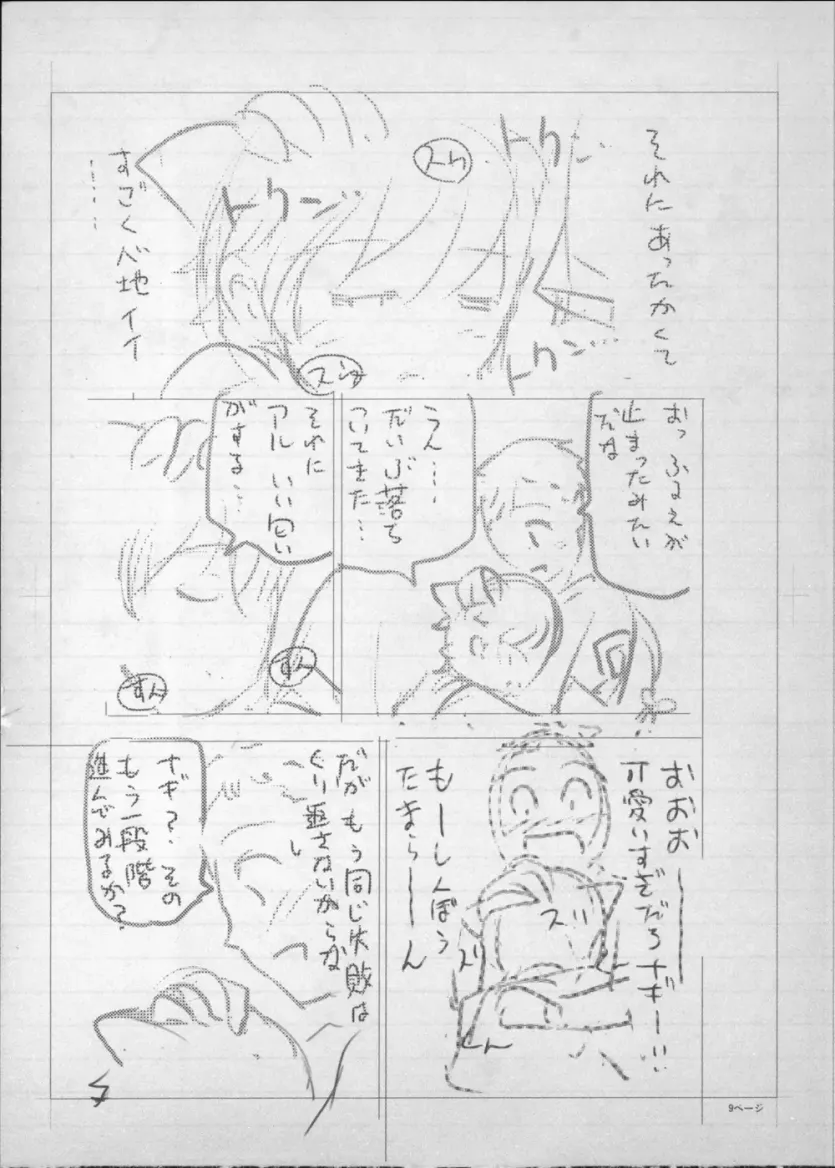 それにあったかくて
トクン…
トクン…
スウ
トクン…
すごく心地イイ
……
スゥ
おっ ふるえが
止まったみたい
だな
うん…
だいぶ落ち
ついてきた…
それに
アル いい匂い
がする…
すん
すん
おおおーー
可愛いすぎだろ ナギー…
もーしんぼう
たまらーーん
スリ
スリ
くん
だが もう同じ失敗は
くり返さないからな
し
ナギ？ その
もう一段階
進んでみるか？
9ページ